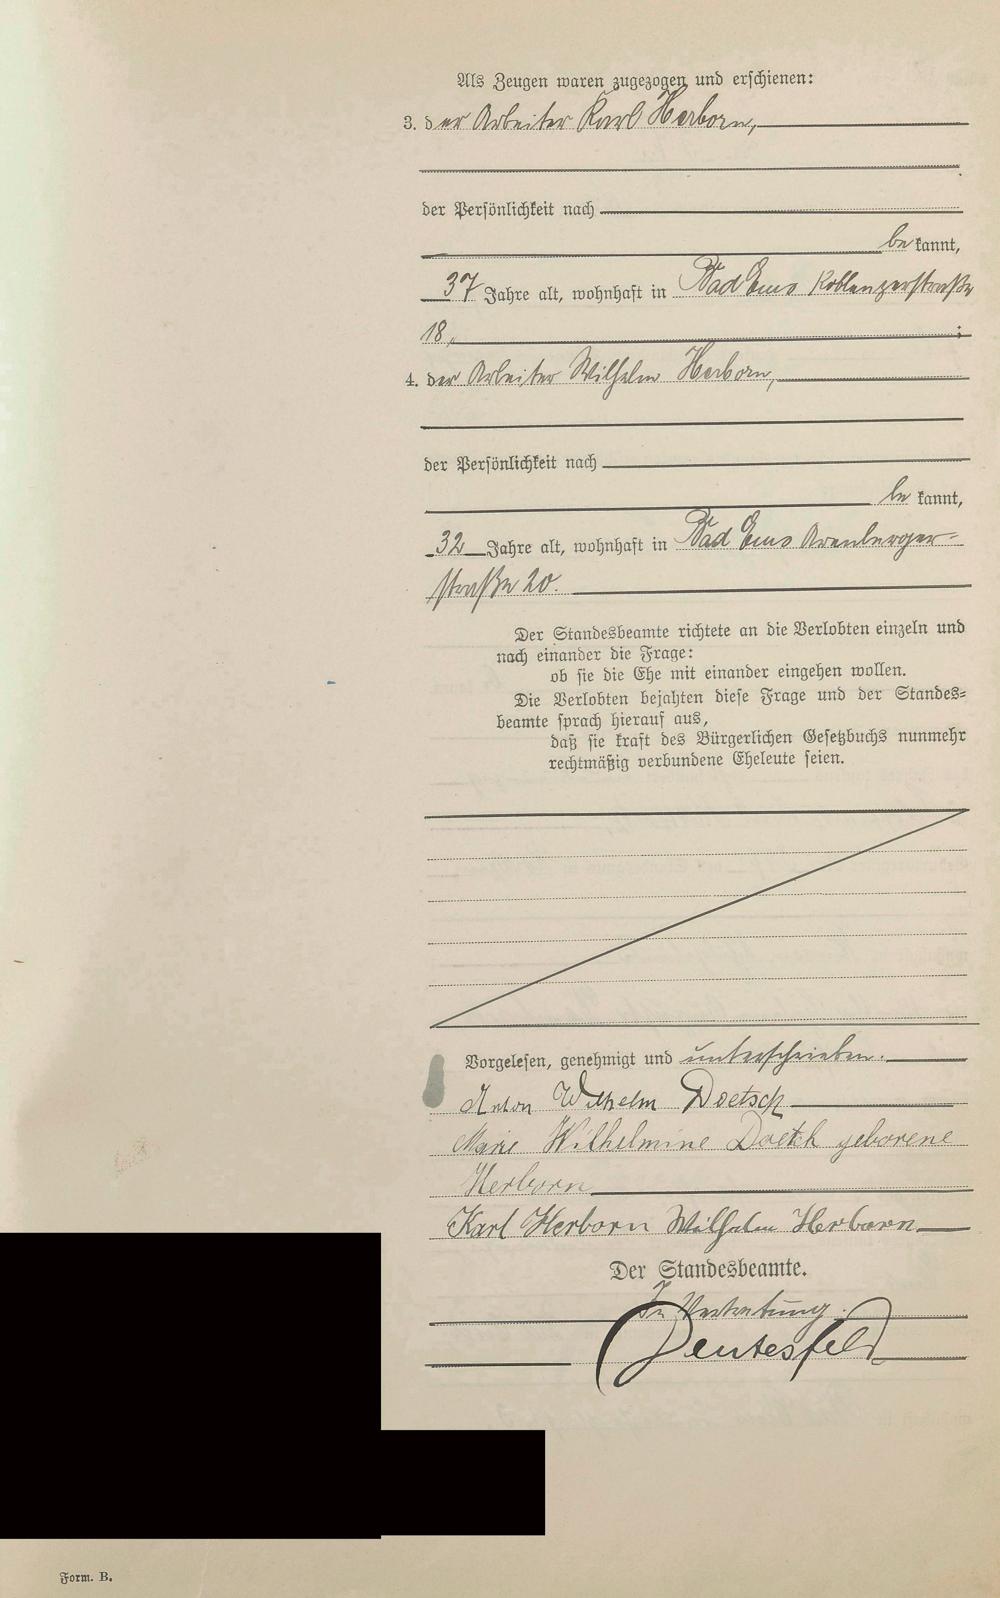 Als Zeugen waren zugezogen und erschienen:
3. der Arbeiter Karl Herborn,
der Persönlichkeit nach
be kannt,
37 Jahre alt, wohnhaft in Bad Ems Koblenzerstraße
18, ;
4. der Arbeiter Wilhelm Herborn,
der Persönlichkeit nach
be kannt,
32 Jahre alt, wohnhaft in Bad Ems Arenberger-
straße 20.
Der Standesbeamte richtete an die Verlobten einzeln und
nach einander die Frage:
ob sie die Ehe mit einander eingehen wollen.
Die Verlobten bejahten diese Frage und der Standes-
beamte sprach hierauf aus,
daß sie kraft des Bürgerlichen Gesetzbuchs nunmehr
rechtmäßig verbundene Eheleute seien.
Vorgelesen, genehmigt und unterschrieben.
Anton Wilhelm Doetsch
Marie Wilhelmine Doetch geborene
Herborn
Karl Herborn Wilhelm Herborn
Der Standesbeamte.
In Vertretung.
Form. B.